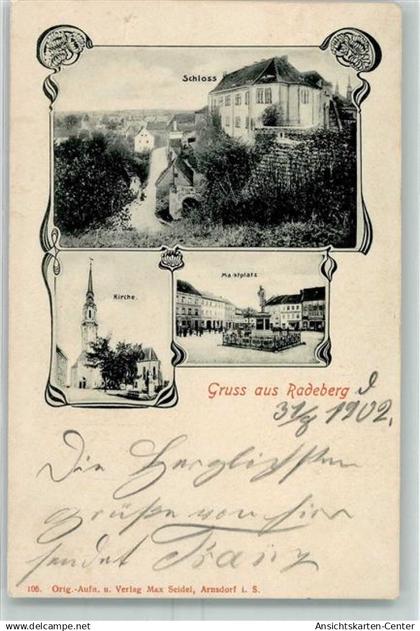 Schloss
Kirche.
Marktplatz
Gruss aus Radeberg d
31/8 1902.
Die Herzlichsten
Grüße von hier
sendet Franz
106. Orig.-Aufn. u. Verlag Max Seidel, Arnsdorf i. S.
Ansichtskarten-Center